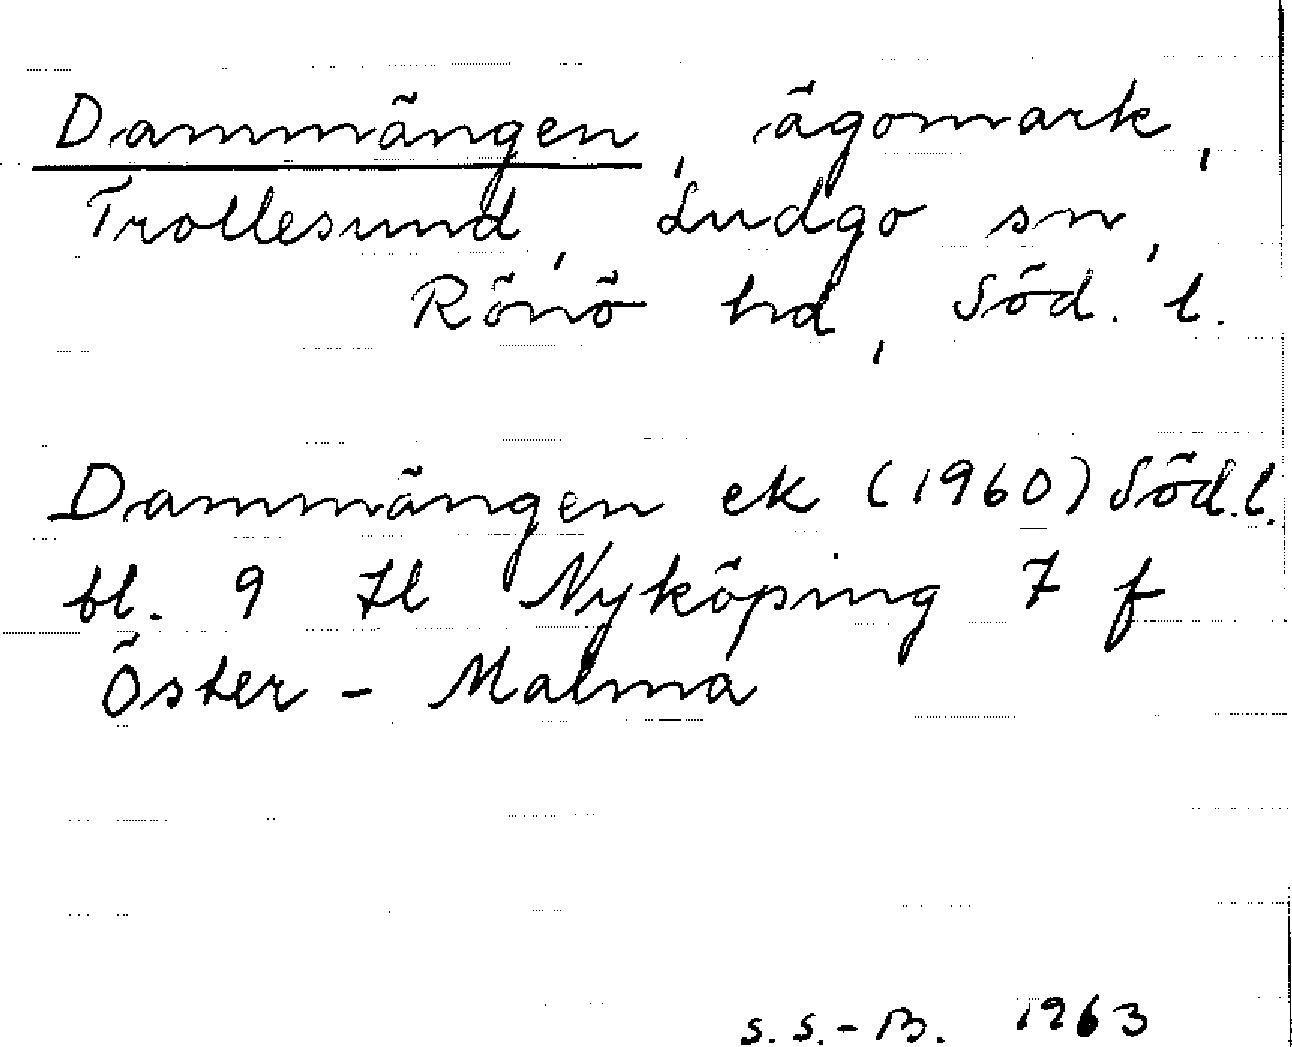 Dammängen, ägomark,
Trollesund, Ludgo sn,
Rönö hd, Söd. l.
Dammängen ek (1960) Söd.l.
bl. 9 Il Nyköping 7 f
Öster-Malma
S.S.-B. 1963